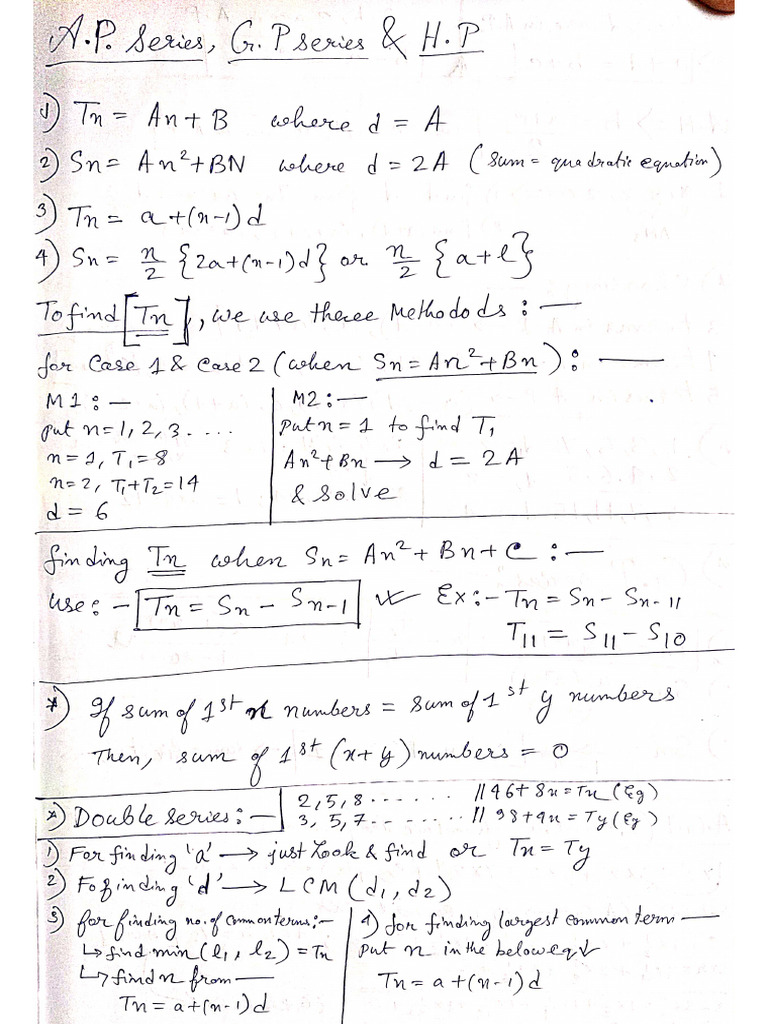 A.P. Series, G.P series & H.P
1) Tn = An + B where d = A
2) Sn = An² + BN where d = 2A (sum = quadratic equation)
3) Tn = a + (n-1)d
4) Sn = n/2 {2a+(n-1)d} or n/2 {a+l}
To find [Tn], we use theree Methodods :—
for Case 1 & Case 2 (when Sn = An² + Bn) :—
M1 :—
put n = 1, 2, 3 ....
n = 1, T₁ = 8
n = 2, T₁+T₂ = 14
d = 6
M2 :—
put n = 1 to find T₁
An² + Bn → d = 2A
& solve
finding Tn when Sn = An² + Bn + C :—
use :- Tn = Sn - Sn-1
Ex :- Tn = Sn - Sn-11
T11 = S11 - S10
*) If sum of 1st x numbers = sum of 1st y numbers
Then, sum of 1st (x+y) numbers = 0
*) Double series :—
2, 5, 8 ...... // 46 + 8n = Tn (Eg)
3, 5, 7 ....... // 98 + 4n = Ty (Eg)
1) For finding 'a' → just Look & find or Tn = Ty
2) Fofinding 'd' → LCM (d₁, d₂)
3) for finding no. of common terms :—
↳ find min (l₁, l₂) = Tn
↳ find n from —
Tn = a + (n-1)d
4) for finding largest common term —
put n in the below eq ↓
Tn = a + (n-1)d